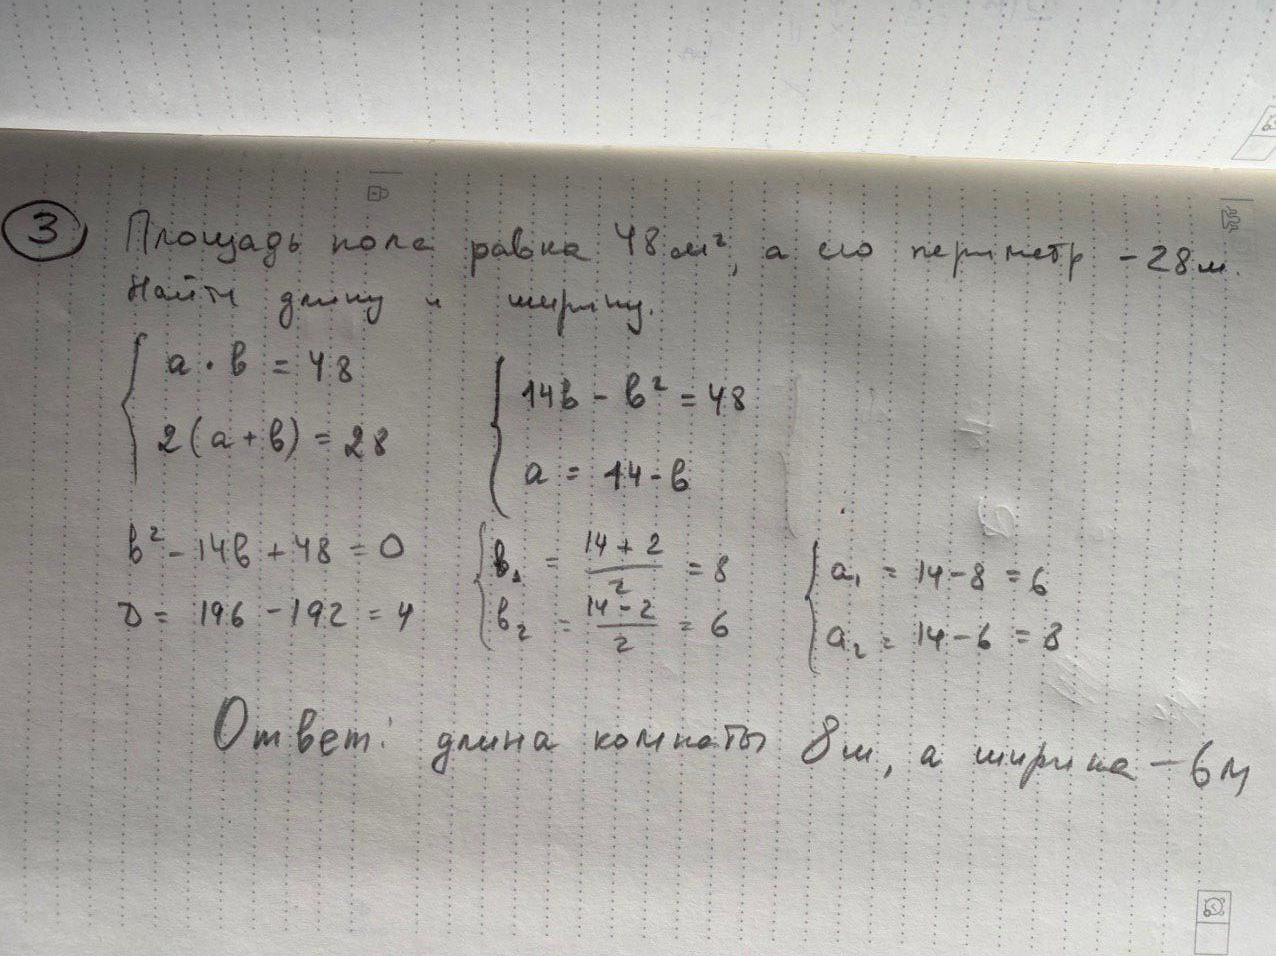 3 Площадь пола равна 48 м², а его периметр - 28 м.
Найти длину и ширину.
{ a · b = 48
2(a + b) = 28
{ 14b - b² = 48
a = 14 - b
b² - 14b + 48 = 0
D = 196 - 192 = 4
{ b₁ = (14 + 2)/2 = 8
b₂ = (14 - 2)/2 = 6
{ a₁ = 14 - 8 = 6
a₂ = 14 - 6 = 8
Ответ: длина комнаты 8 м, а ширина - 6 м